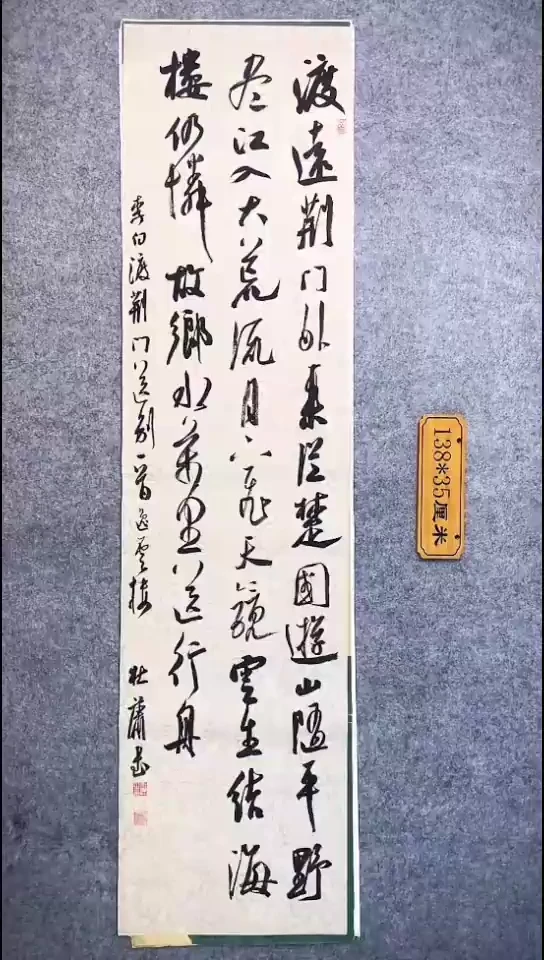 渡遠荆門外来從楚國遊山隨平野
尽江入大荒流月下飛天鏡雲生結海
樓仍憐故鄉水萬里送行舟
李白渡荆門送别一首逸雲樓 杜書
138*35厘米